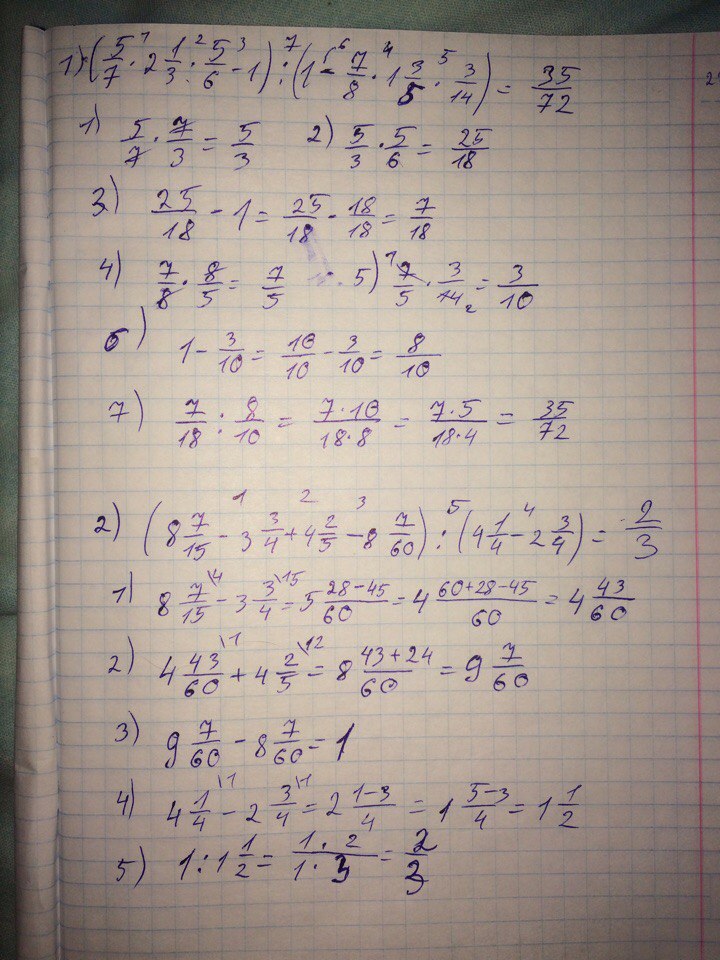 1) (5/7 · 2 1/3 · 5/6 - 1) : (1 - 7/8 · 1 3/5 · 3/14) = 35/72
1) 5/7 · 7/3 = 5/3 2) 5/3 · 5/6 = 25/18
3) 25/18 - 1 = 25/18 - 18/18 = 7/18
4) 7/8 · 8/5 = 7/5 5) 7/5 · 3/14 = 3/10
6) 1 - 3/10 = 10/10 - 3/10 = 8/10
7) 7/18 : 8/10 = 7·10/18·8 = 7·5/18·4 = 35/72
2) (8 7/15 - 3 3/4 + 4 2/5 - 8 7/60) : (4 1/4 - 2 3/4) = 2/3
1) 8 7/15 \4 - 3 3/4 \15 = 5 28-45/60 = 4 60+28-45/60 = 4 43/60
2) 4 43/60 \1 + 4 2/5 \12 = 8 43+24/60 = 9 7/60
3) 9 7/60 - 8 7/60 = 1
4) 4 1/4 \1 - 2 3/4 \1 = 2 1-3/4 = 1 5-3/4 = 1 1/2
5) 1 : 1 1/2 = 1·2/1·3 = 2/3